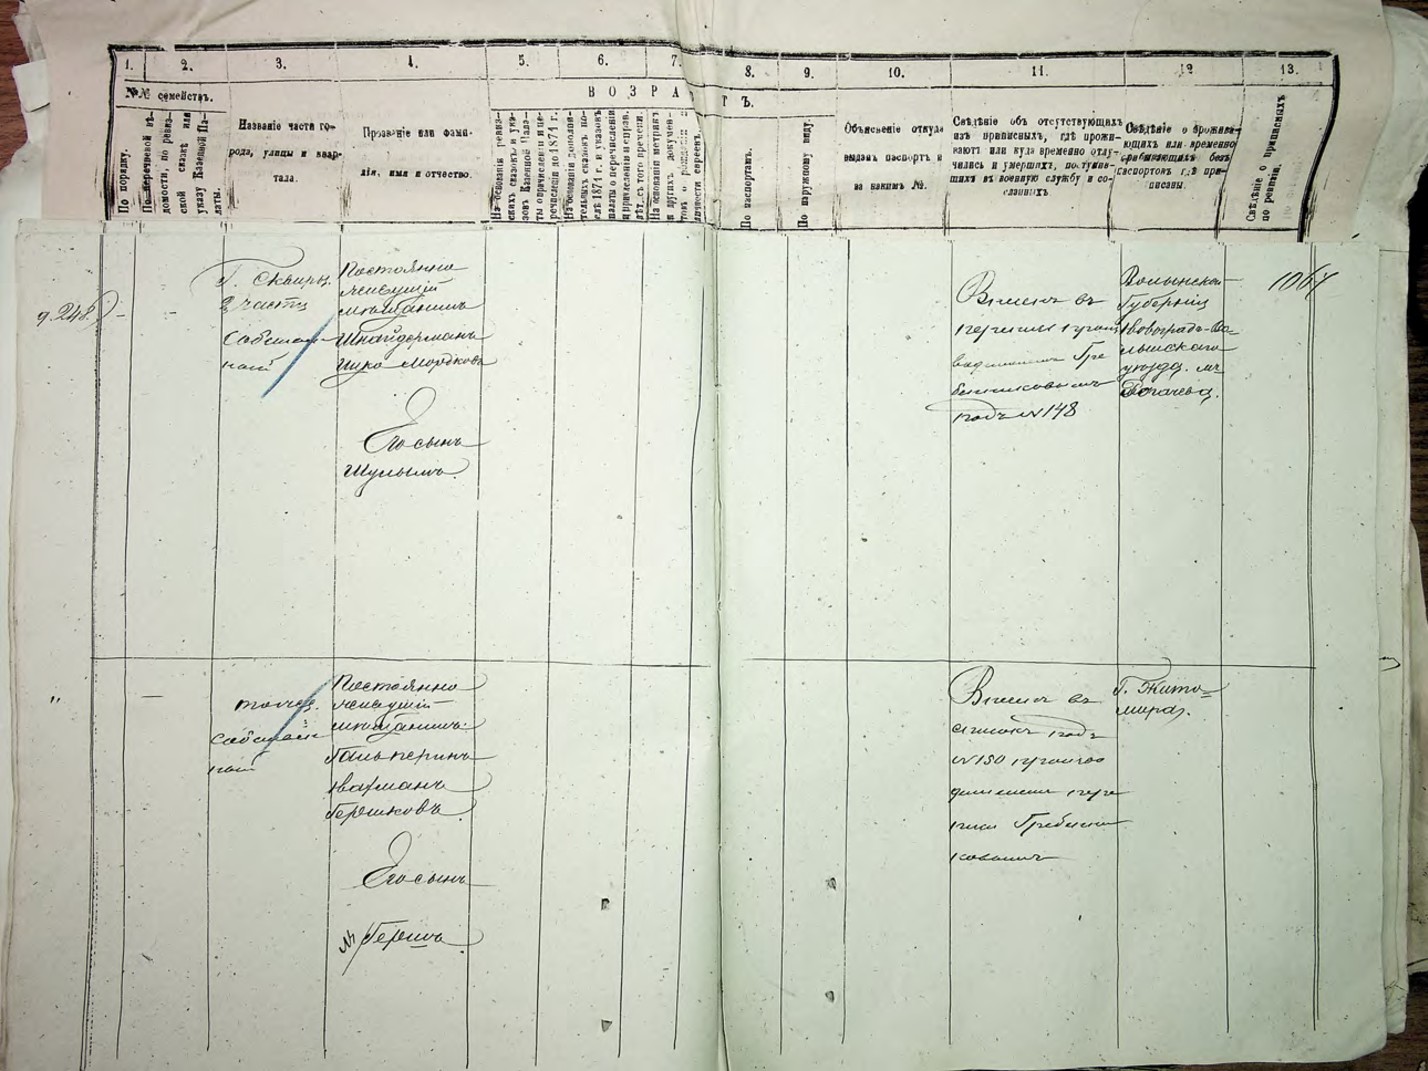 1. 2. 3. 4. 5. 6. 7. 8. 9. 10. 11. 12 13.
№№ семействъ.
ВОЗРА
ТЪ.
По порядку.
По перечневой вѣ-
домости, по ревиз-
ской сказкѣ или
указу Казенной Па-
латы.
Названіе части го-
рода, улицы и квар-
тала.
Прозваніе или фами-
лія, имя и отчество.
На основаніи ревиз-
скихъ сказокъ и ука-
зовъ Казенной Пала-
ты о причисленіи и пе-
речисленіи до 1871 г.
На основаніи дополни-
тельныхъ сказокъ по-
слѣ 1871 г. и указовъ
палаты о перечисленіи
и причисленіи и прав.
лѣт. съ того времени.
На основаніи метрикъ
и другихъ докумен-
товъ о рожденіи и
личности евреевъ.
По паспортамъ.
По наружному виду.
Объясненіе откуда
выданъ паспортъ и
за какимъ №.
Свѣдѣніе объ отсутствующихъ
изъ приписныхъ, гдѣ прожи-
ваютъ или куда временно отлу-
чились и умершихъ, поступив-
шихъ въ военную службу и со-
сланныхъ
Свѣдѣніе о прожива-
ющихъ или временно
пребывающихъ безъ
паспортовъ гдѣ при-
писаны.
Свѣдѣніе о приписныхъ
по ревизіи.
д. 248.
Г. Сквиры.
части
Собствен
ной
Постоянно
живущій
мѣщанинъ
Шнайдерманъ
Мордковъ
Его сынъ
Шулымъ
въ
Гре
бенниковымъ
подъ № 148
Волынской
Губерніи
Новоградъ-Во
лынскаго
уѣзда. м.
Рогачева.
1064
"
тоже.
Собствен
ной
Постоянно
живущій
мѣщанинъ
Гальперинъ
Нахманъ
Гершковъ
Его сынъ
Гершъ
въ
списокъ подъ
№ 150
Гребенни
ковымъ
г. Жито-
мира.